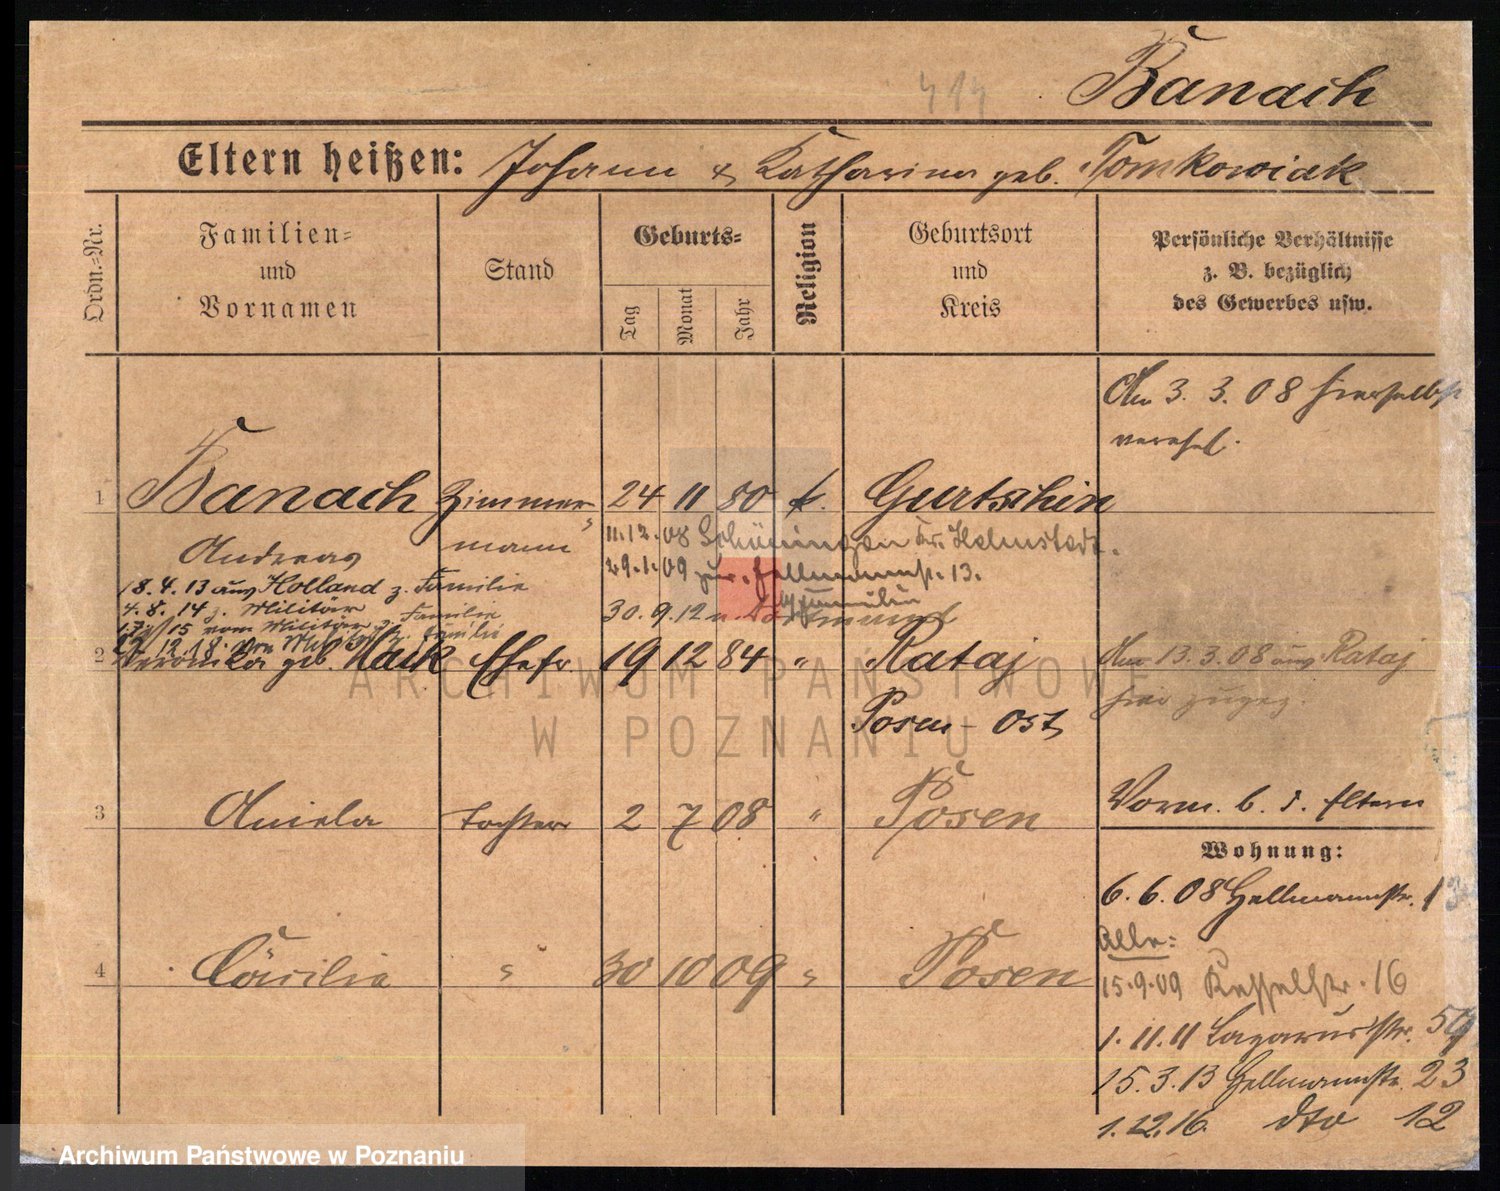 414
Banach
Eltern heißen: Johann & Katharina geb. Tomkowiak
Ordn.-Nr.
Familien-
und
Vornamen
Stand
Geburts-
Tag
Monat
Jahr
Religion
Geburtsort
und
Kreis
Persönliche Verhältnisse
z. B. bezüglich
des Gewerbes usw.
Am 3. 3. 08 hierselbst
verehel.
1 Banach Zimmer- 24 11 80 k. Gurtschin
mann
Andreas
11.12.08 Schöningen Kr. Helmstedt.
29.1.09 zur. Hellmannstr. 13.
z. Familie
30.9.12 n. Dortmund
18.4.13 aus Holland z. Familie
4.8.14 z. Militär
15 vom Militär z. Familie
12.18. von Militär z. Familie
2 Veronika geb. Maik Ehefr 19 12 84 " Rataj
Posen-Ost
Am 13.3.08 aus Rataj
hier zugez.
3 Aniela Tochter 2 7 08 " Posen
Vorm. b. d. Eltern
Wohnung:
6.6.08 Hellmannstr. 13
Alle:
4 Cäcilie " 30 10 09 " Posen
15.9.09 Kesselstr. 16
1.11.11 Lazarusstr.
15.3.13 Hellmannstr. 23
1.12.16. dto 12
ARCHIWUM PAŃSTWOWE
W POZNANIU
Archiwum Państwowe w Poznaniu